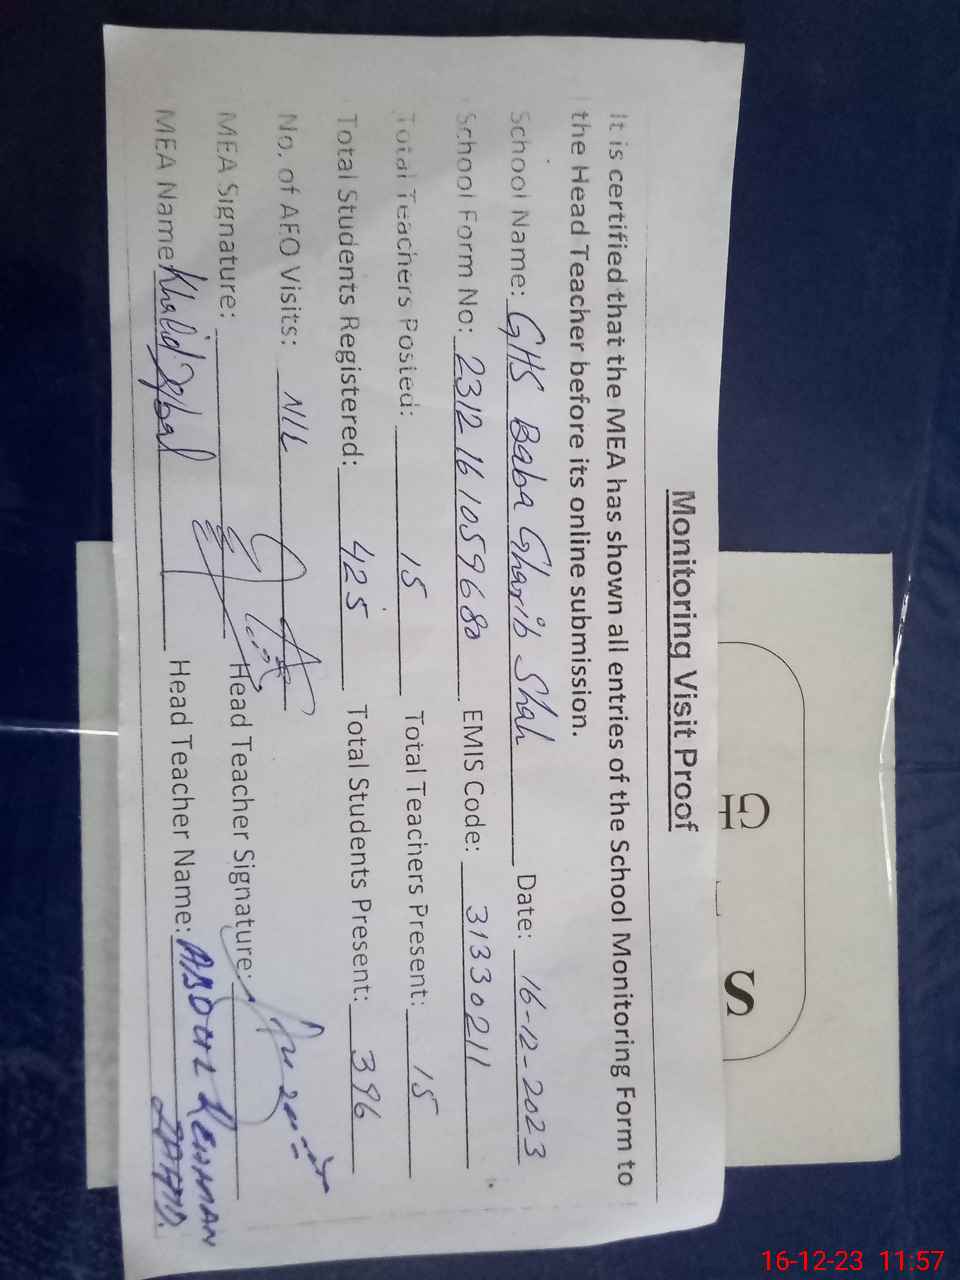 Monitoring Visit Proof
It is certified that the MEA has shown all entries of the School Monitoring Form to
the Head Teacher before its online submission.
School Name: GHS Baba Gharib Shah Date: 16-12-2023
School Form No: 2312161059680 EMIS Code: 31330211
Total Teachers Posted: 15 Total Teachers Present: 15
Total Students Registered: 425 Total Students Present: 396
No. of AEO Visits: NIL
MEA Signature: Head Teacher Signature:
MEA Name: Khalid Iqbal Head Teacher Name: ABDUL REHMAN
ZAHID
S
16-12-23 11:57